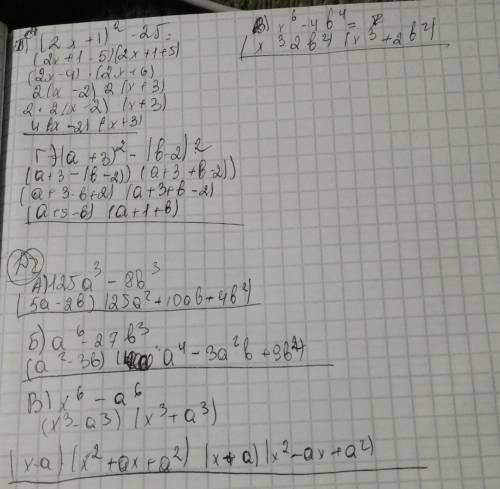 (2x+1)² - 25 =
(2x+1-5)(2x+1+5)
(2x-4)·(2x+6)
2(x-2) 2(x+3)
2·2(x-2) (x+3)
4(x-2)(x+3)
Г) (a+3)² - (b-2)²
(a+3-(b-2)) (a+3+b-2))
(a+3-b+2) (a+3+b-2)
(a+5-b) (a+1+b)
В) x⁶ - 4b⁴ =
(x³ 2b²) (x³+2b²)
№2
А) 125a³ - 8b³
(5a-2b) (25a²+10ab+4b²)
Б) a⁶ - 27b³
(a²-3b) ( a⁴-3a²b+9b²)
В) x⁶ - a⁶
(x³-a³) (x³+a³)
(x-a) (x²+ax+a²) (x+a)(x²-ax+a²)